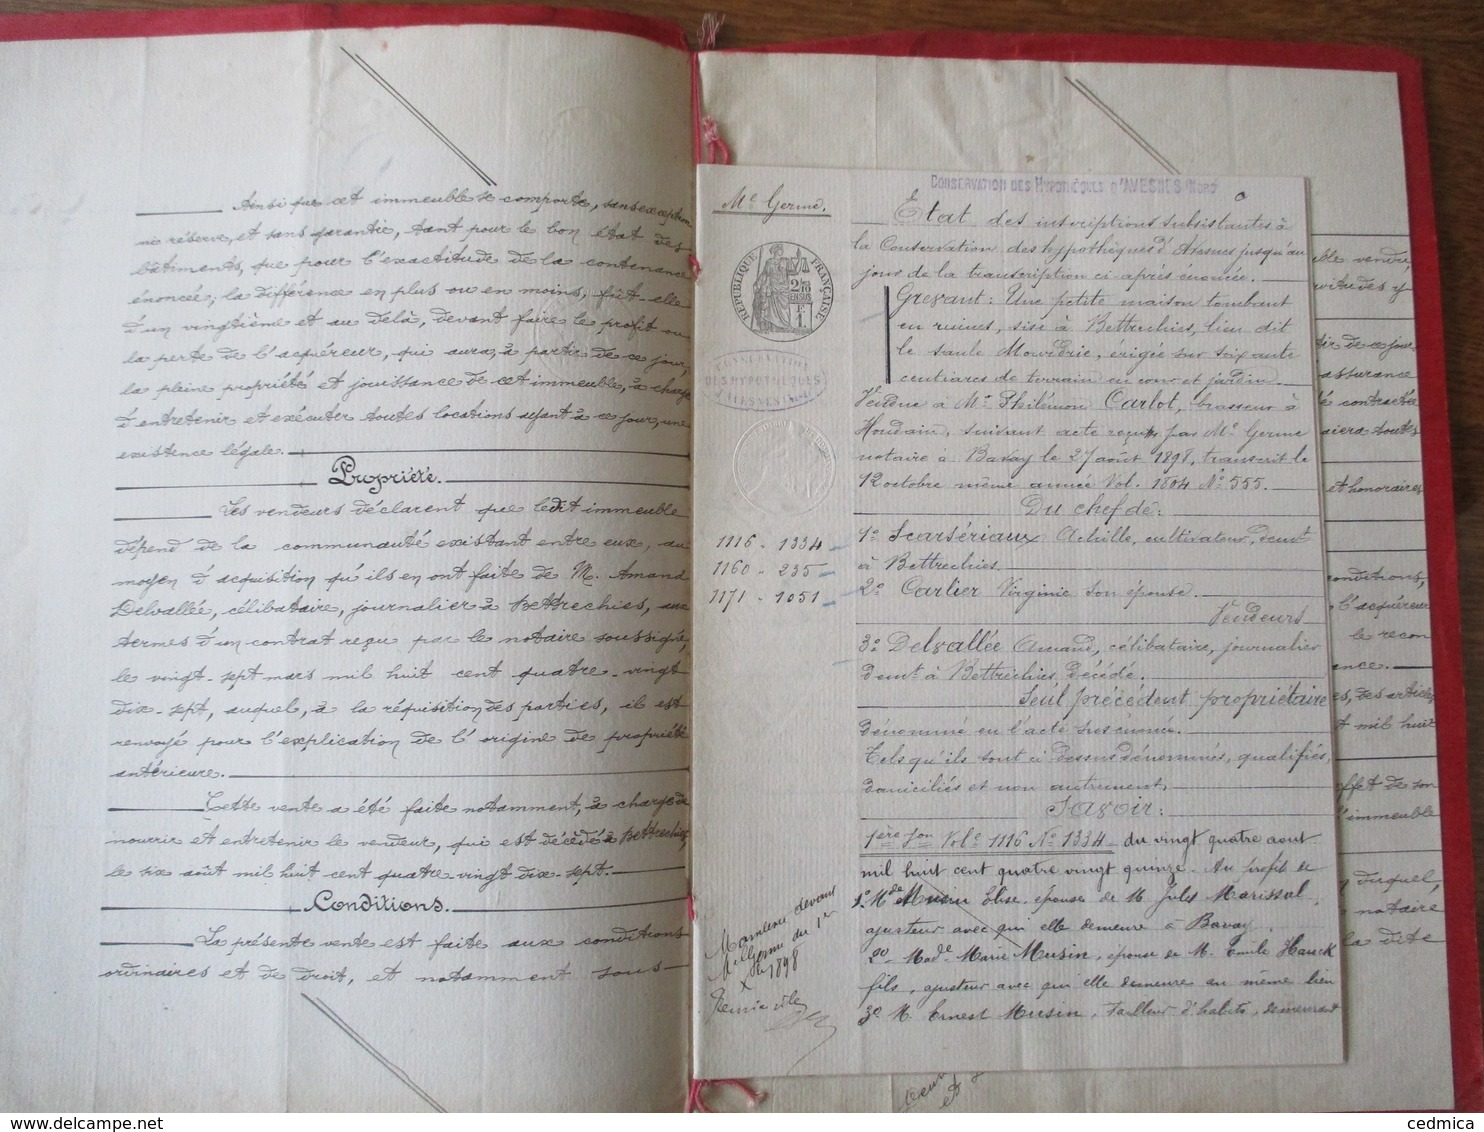 Ainsi que cet immeuble se comporte, sans exception
ni réserve, et sans garantie, tant pour le bon état des
bâtiments, que pour l'exactitude de la contenance
énoncée; la différence en plus ou en moins, fût-elle
d'un vingtième et au delà, devant faire le profit ou
la perte de l'acquéreur, qui aura, à partir de ce jour,
la pleine propriété et jouissance de cet immeuble, à charge
d'entretenir et exécuter toutes locations ayant à ce jour, une
existence légale.
Propriété.
Les vendeurs déclarent que ledit immeuble
dépend de la communauté existant entre eux, au
moyen d'acquisition qu'ils en ont faite de M. Amand
Delvallée, célibataire, journalier à Bettrechies, aux
termes d'un contrat reçu par le notaire soussigné,
le vingt-sept mars mil huit cent quatre-vingt
dix-sept, auquel, à la réquisition des parties, il est
renvoyé pour l'explication de l'origine de propriété
antérieure.
Cette vente a été faite notamment, à charge de
nourrir et entretenir le vendeur, qui est décédé à Bettrechies,
le six août mil huit cent quatre-vingt dix-sept.
Conditions.
La présente vente est faite aux conditions
ordinaires et de droit, et notamment sous-
CONSERVATION DES HYPOTHÈQUES D'AVESNES (NORD)
Me Germe.
RÉPUBLIQUE FRANÇAISE
2/10 EN SUS
F. 1.
CONSERVATION
DES HYPOTHÈQUES
D'AVESNES (Nord)
1116 - 1334
1160 - 235
1171 - 1051
Mainlevée devant
Me Germe du 1er
1898
Etat des inscriptions subsistantes à
la Conservation des hypothèques d'Avesnes jusqu'au
jour de la transcription ci-après énoncée.
Grevant: Une petite maison tombant
en ruines, sise à Bettrechies, lieu dit
le saule Mouvdrie, érigée sur soixante
centiares de terrain en cour et jardin.
Vendue à Mr Philémon Carlot, brasseur à
Houdain, suivant acte reçu par Me Germe
notaire à Bavay le 27 août 1898, transcrit le
12 octobre même année Vol. 1804 No 555.
Du chef de:
1o Scarsériaux Achille, cultivateur, demt
à Bettrechies.
2o Carlier Virginie son épouse.
Vendeurs
3o Delvallée Amand, célibataire, journalier
demt à Bettrechies, décédé.
Seul précédent propriétaire
dénommé en l'acte susénoncé.
Tels qu'ils sont ci dessus dénommés, qualifiés,
domiciliés et non autrement,
Savoir:
1ère Ion Vole 1116 No 1334 - du vingt quatre aout
mil huit cent quatre vingt quinze. Au profit de
1o Mde Musin Elise, épouse de M. Jules Marissal,
ajusteur avec qui elle demeure à Bavay.
2o Made Marie Musin, épouse de M. Emile Hauck
fils, ajusteur avec qui elle demeure au même lieu
3o M. Ernest Musin, Tailleur d'habits, demeurant
ble vendu,
servitudes y
tir de ce jour
assurance
contractée
toutes
et honoraires
conditions,
l'acquéreur
le recon
des articles
mil huit
effet de son
l'immeuble
duquel,
notaire
la dite
CPArama.com by cedmica